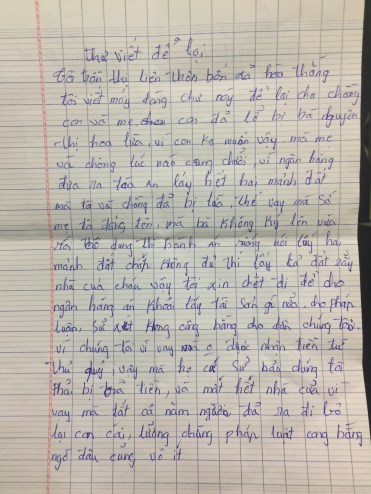 Thư viết để lại
Tôi trần thị liên thôn bốn xã hòa thắng
tôi viết mấy dòng chữ này để lại cho chồng
con và mẹ, con đã lở bị bà nguyên
thị hoa lừa, vì con ko muốn vậy mà mẹ
và chồng lúc nào cũng chửi, vì ngân hàng
đưa ra tòa án lấy hết hai mảnh đất
mà tôi và chồng đã bị lừa, thế vay mà số
mẹ tôi đứng tên, mà bà không ký lên vừa
rồi thi hành án xuống nói lấy hai
mảnh đất chấp không đủ thì lấy cả đất
nhà của cháu vậy tôi xin chết đi để cho
ngân hàng án khỏi lấy tài sản gì nữa, cho pháp
luận, sử xét công bằng cho dân chúng tôi
vì chúng tôi vì vay mà o được nhận tiền từ
thủ quỷ, vậy mà họ cố sử bảo đúng tôi
phải bị trả tiền, và mất hết nhà cửa vì
vay mà tất cả năm người đã ra đi bỏ
lại con cái, lưỡng chừng pháp luật công bằng
ngờ đâu cũng vô ít